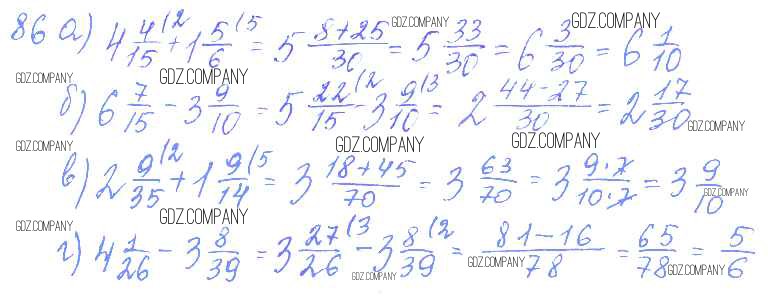 86 а) 4 4/15 (2 + 1 5/6 (5 = 5 (8+25)/30 = 5 33/30 = 6 3/30 = 6 1/10
GDZ.COMPANY GDZ.COMPANY GDZ.COMPANY
GDZ.COMPANY GDZ.COMPANY
б) 6 7/15 - 3 9/10 = 5 22/15 (2 - 3 9/10 (3 = 2 (44-27)/30 = 2 17/30
GDZ.COMPANY
GDZ.COMPANY GDZ.COMPANY GDZ.COMPANY
в) 2 9/35 (2 + 1 9/14 (5 = 3 (18+45)/70 = 3 63/70 = 3 (9·7)/(10·7) = 3 9/10
GDZ.COMPANY
GDZ.COMPANY GDZ.COMPANY
г) 4 1/26 - 3 8/39 = 3 27/26 (3 - 3 8/39 (2 = (81-16)/78 = 65/78 = 5/6
GDZ.COMPANY GDZ.COMPANY GDZ.COMPANY